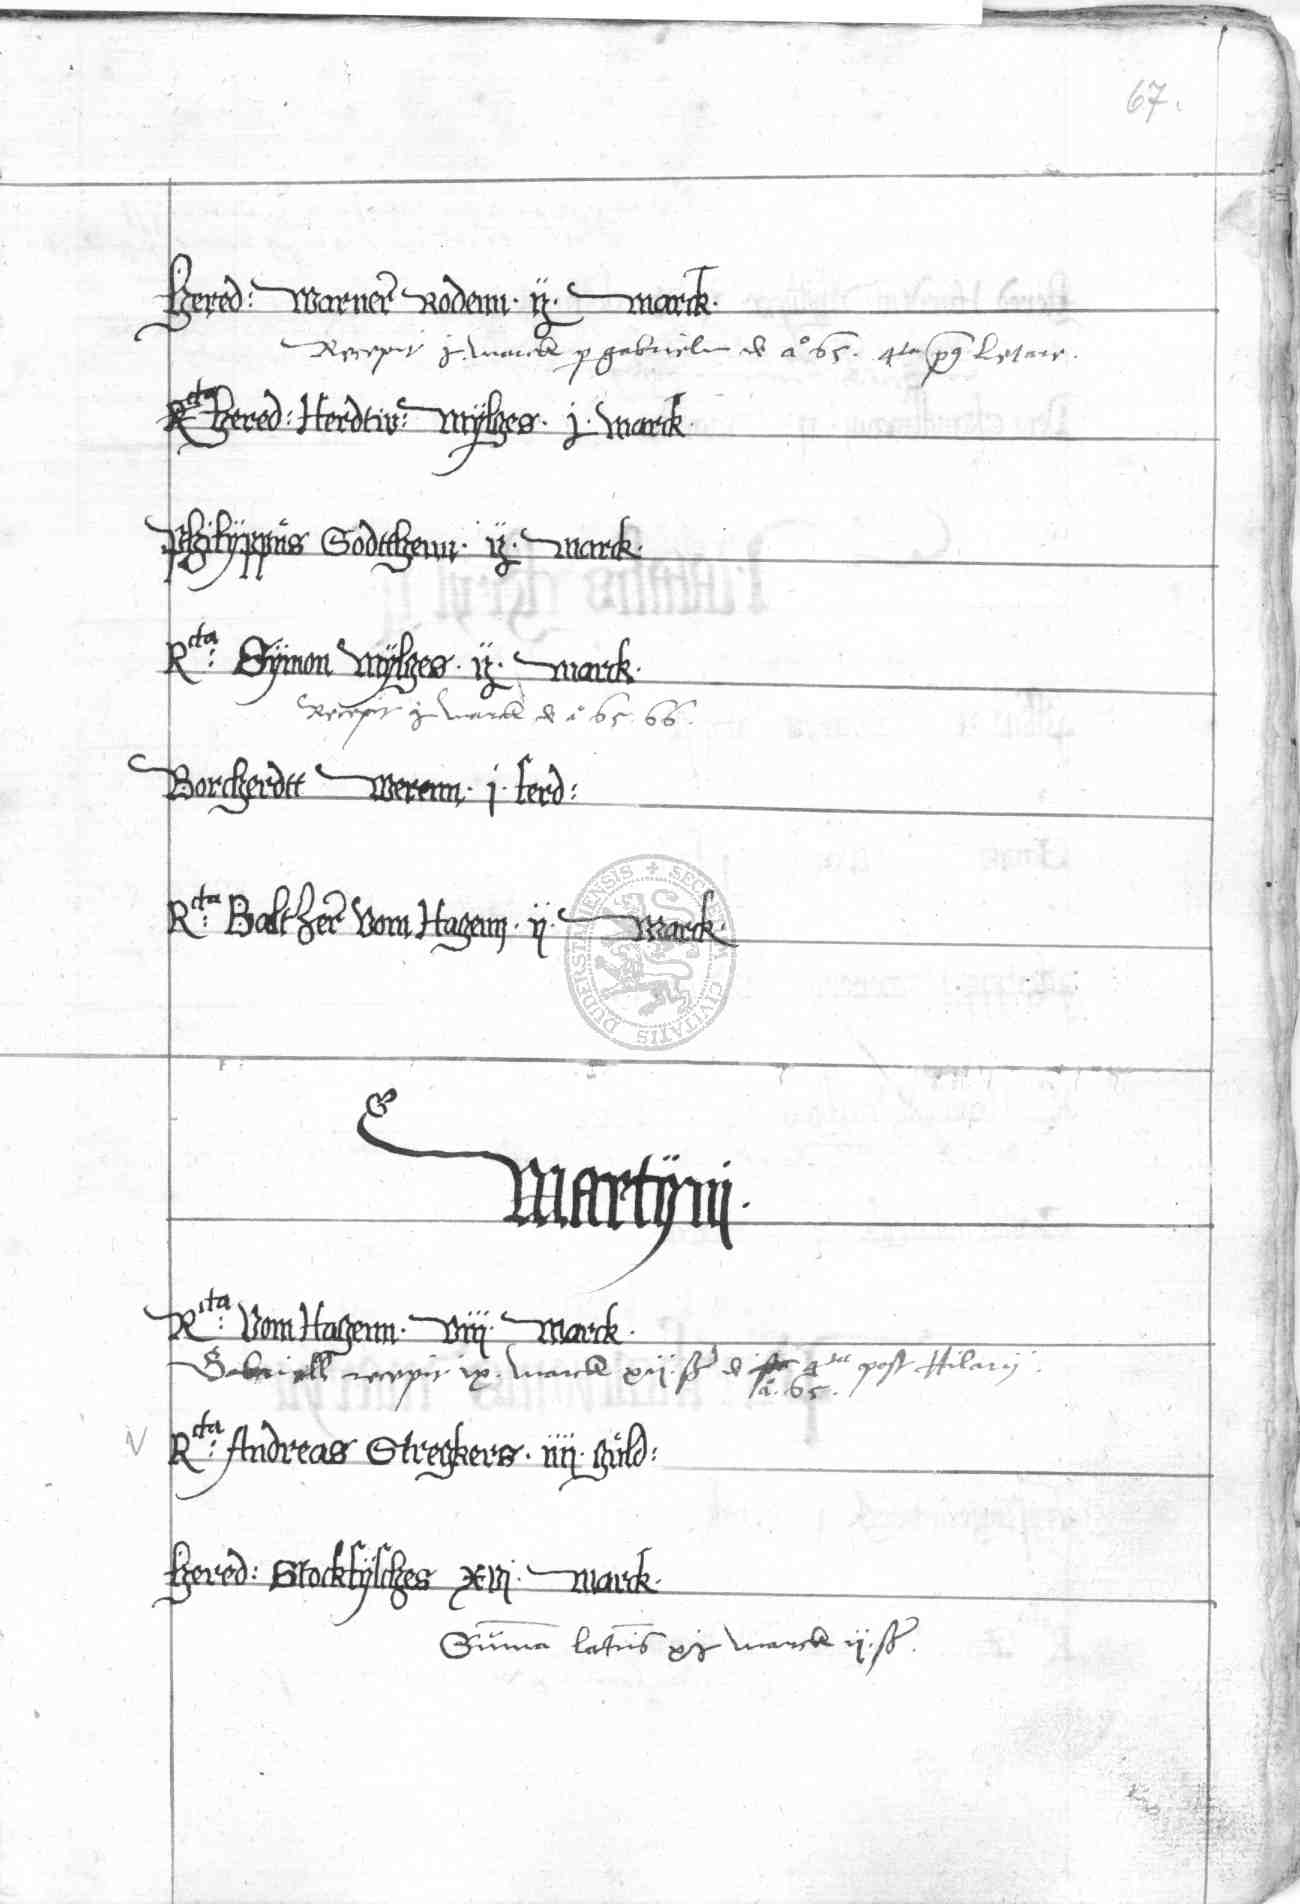 67.
hered: Warner Rodenn. ij. marck.
Recepit j. marck p gabrielem de ao 65. 4ta pq Letare.
Rcta hered: Herdtw: Mÿlges. j. marck
Philÿppus Godtthenn. ij. marck.
Rcta: Sÿmon Mÿlges. ij. marck.
Recepit j marck de a 65. 66.
Borcherdtt Werenn. j. ferd:
Rcta: Baltzer Vom Hagenn. ij. Marck.
SECRETUM CIVITATIS DUDERSTADIENSIS
Martÿnj.
Rcta: Vom Hagenn. viij. Marck.
Gabriell recepit marck xij. ß de 4ta post Hilarij.
a. 65.
Rcta: Andreas Stregkers. iiij. guld:
hered: Stockfÿsches xvj. marck.
Suma lateris xj marck ij. ß.